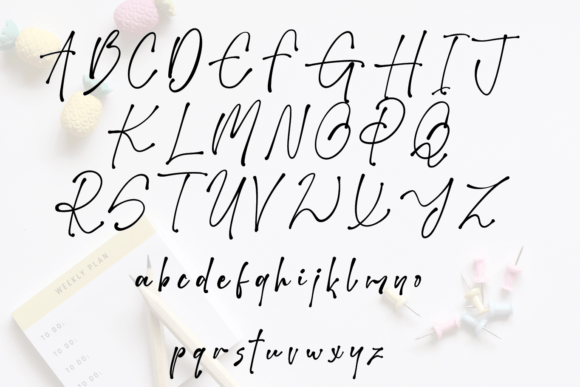 A B C D E F G H I J
K L M N O P Q
R S T U V W X Y Z
a b c d e f g h i j k l m n o
p q r s t u v w x y z
WEEKLY PLAN
TO DO:
TO DO:
TO DO:
TO DO: